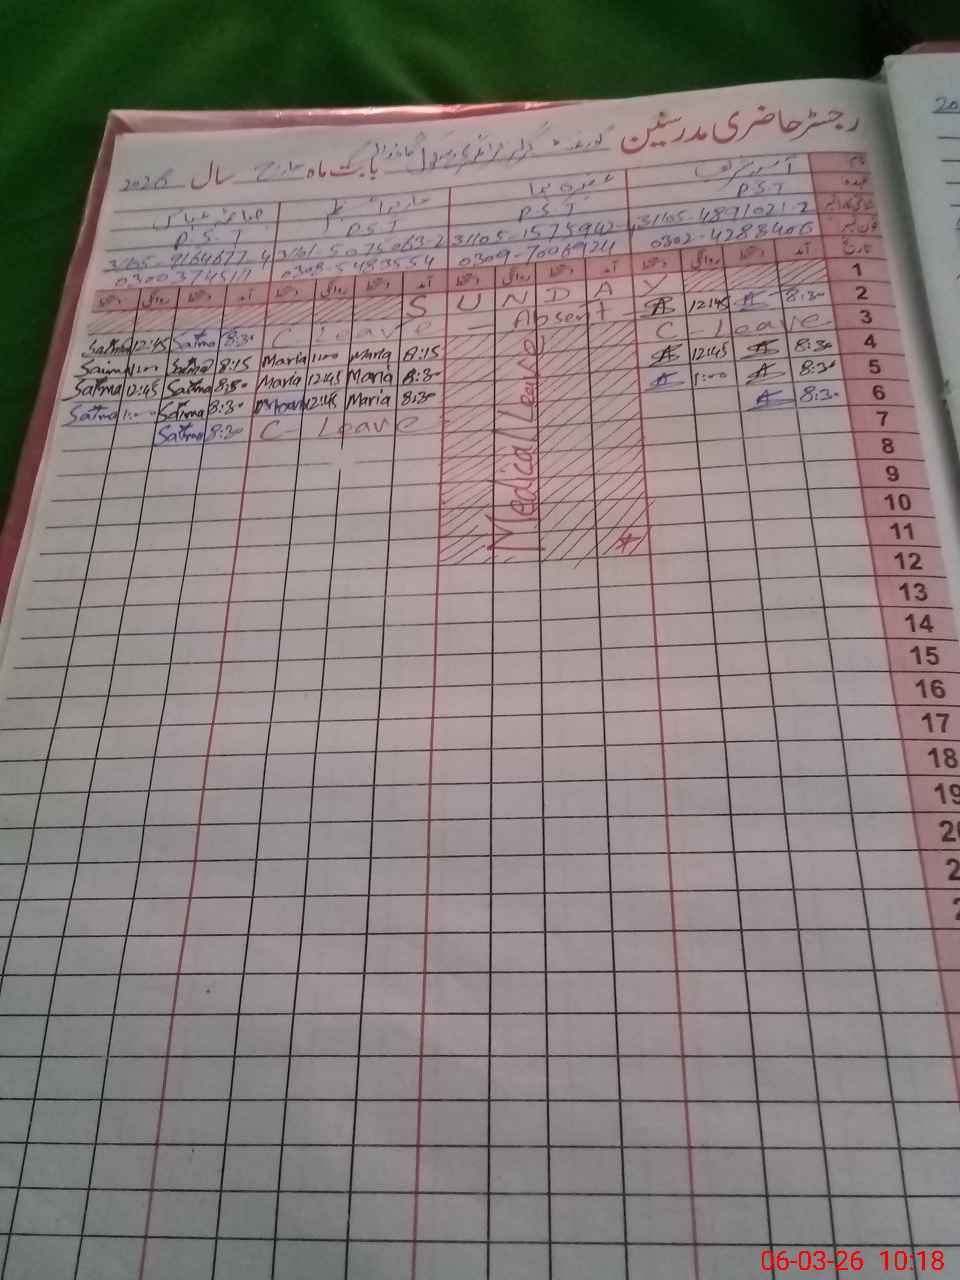 رجسٹر حاضری مدرسین گورنمنٹ گرلز پرائمری سکول بابت ماہ مارچ سال 2026
نام
عہدہ P.S.T P.S.T P.S.T P.S.T
31105-4891021-2 31105-1575942-4 31101-5075063-2 31105-9164677-4
فون نمبر 0302-4288406 0309-7006921 0308-5483554 0300374511
تاریخ آمد دستخط روانگی دستخط آمد دستخط روانگی دستخط آمد دستخط روانگی دستخط آمد دستخط روانگی دستخط
1 SUNDAY
2 8:30 A 12:45 A - Absent - C Leave 8:30 Saima 12:45 Saima
3 C - Leave Medical Leave 8:15 Maria 1:00 Maria 8:15 Saima 1:00 Saima
4 8:30 A 12:45 A 8:30 Maria 12:45 Maria 8:30 Saima 12:45 Saima
5 8:30 A 1:00 A 8:30 Maria 12:45 Maria 8:30 Saima 1:00 Saima
6 8:30 A C - Leave 8:30 Saima
7
8
9
10
11
12
13
14
15
16
17
18
19
20
06-03-26 10:18